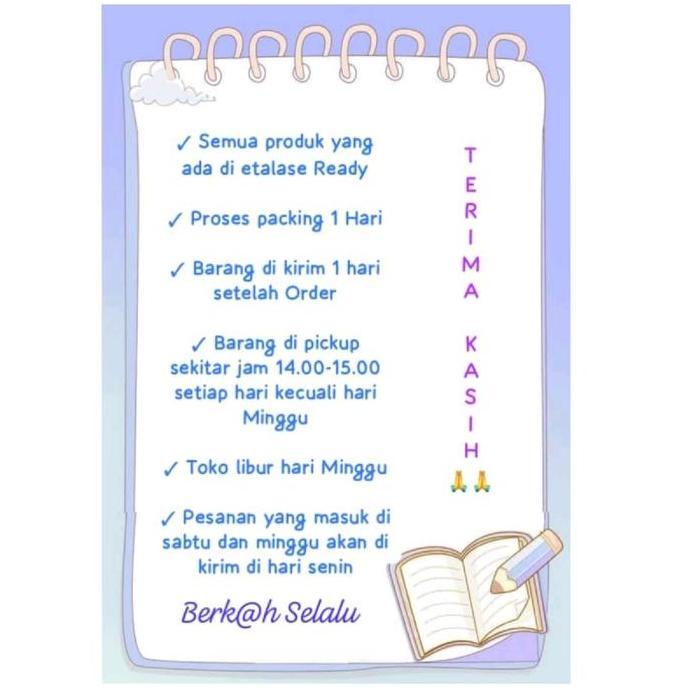 ✓ Semua produk yang
ada di etalase Ready
✓ Proses packing 1 Hari
✓ Barang di kirim 1 hari
setelah Order
✓ Barang di pickup
sekitar jam 14.00-15.00
setiap hari kecuali hari
Minggu
✓ Toko libur hari Minggu
✓ Pesanan yang masuk di
sabtu dan minggu akan di
kirim di hari senin
Berk@h Selalu
TERIMA KASIH 🙏🙏